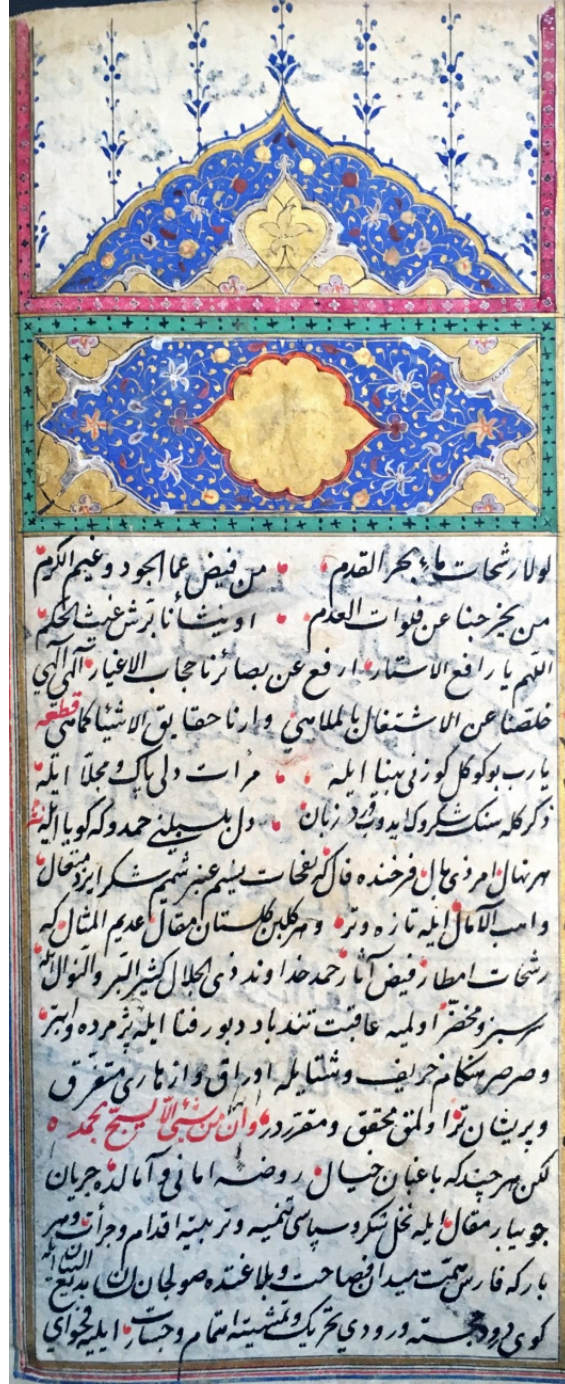 لولا رشحات ماء بحر القدم من فيض عما الجود و غيم الكرم
من يخرجنا عن فلوات العدم او ينشأنا برش غيث الحكم
اللهم يا رافع الاستار ارفع عن بصائرنا حجاب الاغيار الهى الهى
خلصنا عن الاشتغال بالملاهى وارنا حقايق الاشيا كماهى قطعه
يارب بو كوكل كوزنى بينا ايله مرات دلى پاك و مجلا ايله
ذكر كله سنك شكروك ايدوب ورد زبان دل بلبلينى حمدوكه كويا ايله نثر
هر نهال امر ذى بال فرخنده فال كه نفحات نسيم عنبر شميم شكر ايزد متعال
واهب الآمال ايله تازه و تر و هر كلبن كلستان مقال عديم المثال كه
رشحات امطار فيض آثار حمد خداوند ذى الجلال كثير البر والنوال ايله
سرسبز و مخضر اولميه عاقبت تندباد دبور فنا ايله پژمرده و ابتر
و صرصر هنكام خريف و شتا ايله اوراق و ازهارى متفرق
و پريشان تر اولمق محقق و مقرردر وان من شئ الا يسبح بحمده
لكن هر چند كه باغبان خيال روضه امانى و آمالده جريان
جويبار مقال ايله نخل شكر و سپاسى تنميه و تربيه اقدام و جرأت و هر
بار كه فارس همت ميدان فصاحت و بلاغتده صولجان لسان بديع البيان ايله
كوى درود خجسته ورودى تحريك و تمشيته اهتمام و جسارت ايليه فحواى